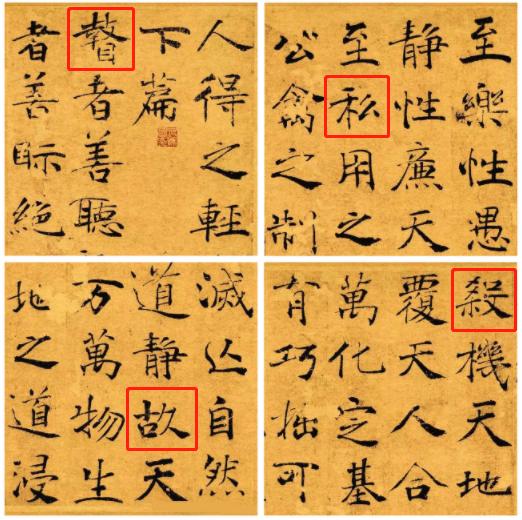 人得之輕
下篇
瞽者善聽
者善眎絕
至樂性愚
静性廉天
至私用之
公禽之制
滅亾自然
道静故天
万萬物生
地之道浸
殺機天地
覆天人合
萬化定基
有巧拙可